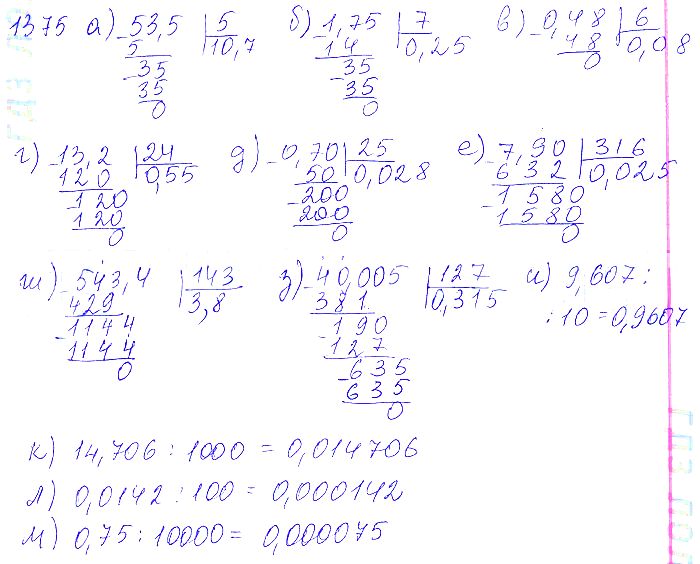 1375 а) 53,5 | 5 б) 1,75 | 7 в) 0,48 | 6
5 10,7 14 0,25 48 0,08
35 35 0
35 35
0 0
г) 13,2 | 24 д) 0,70 | 25 е) 7,90 | 316
120 0,55 50 0,028 632 0,025
120 200 1580
120 200 1580
0 0 0
ж) 543,4 | 143 з) 40,005 | 127 и) 9,607 :
429 3,8 381 0,315 : 10 = 0,9607
1144 190
1144 127
0 635
635
0
к) 14,706 : 1000 = 0,014706
л) 0,0142 : 100 = 0,000142
м) 0,75 : 10000 = 0,000075